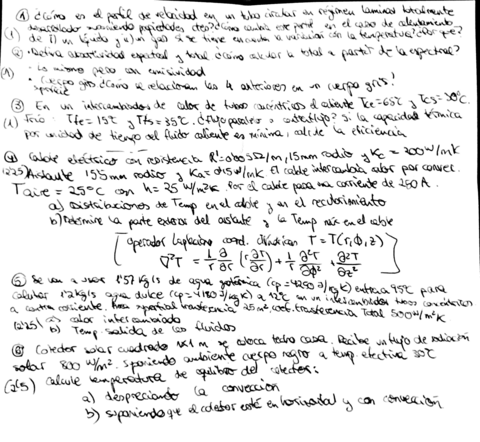 ① ¿Cómo es el perfil de velocidad en un tubo circular en régimen laminar totalmente
desarrollado suponiendo propiedades ctes? ¿Cómo cambia ese perfil en el caso de calentamiento
(1) de i) un líquido y ii) un gas si se tiene en cuenta la variación con la temperatura? ¿Por qué?
② · Defina absortividad espectral y total ¿Cómo calcular la total a partir de la espectral?
(1) · Lo mismo pero con emisividad
· Cuerpo gris ¿Cómo se relacionan las 4 anteriores en un cuerpo gris?
③ En un intercambiador de calor de tubos concéntricos el caliente Tce=65ºC y Tcs=30ºC.
(1) Frío: Tfe=15ºC y Tfs=35ºC. ¿Flujo paralelo o contraflujo? Si la capacidad térmica
por unidad de tiempo del fluido caliente es mínima, calcule la eficiencia
④ Cable eléctrico con resistencia R'= Ω/m, 15mm radio y Kc=200W/mK
(2'25) Aislante 15'5mm radio y Ka=0'15W/mK. El cable intercambia calor por convec.
Taire=25ºC con h=25 W/m²K. Por el cable pasa una corriente de 250 A.
a) Distribuciones de Temp en el cable y en el recubrimiento
b) Determine la parte externa del aislante y la Temp máx en el cable
[operador Laplaciano coord. cilíndricas T=T(r,ϕ,z)
∇²T = 1/r ∂/∂r (r ∂T/∂r) + 1/r² ∂²T/∂ϕ² + ∂²T/∂z²]
⑤ Se van a usar 1'57 Kg/s de agua (cp=4250 J/kgK) entra a 75ºC para
calentar 1'2Kg/s agua dulce (cp=4180 J/kgK) a 12ºC en un intercambiador tubos concéntricos
a contra corriente. Área superficial transferencia 25m², coef. transferencia Total 500W/m²K
(2'25) a) calor intercambiado
b) Temp. salida de los fluidos
⑥ Colector solar cuadrado 1x1 m se coloca techo casa. Recibe un flujo de radiación
solar 800 W/m². Suponiendo ambiente cuerpo negro a temp. efectiva 30ºC
(2'5) Calcule temperatura de equilibrio del colector:
a) despreciando la convección
b) suponiendo que el colector esté en horizontal y con convección